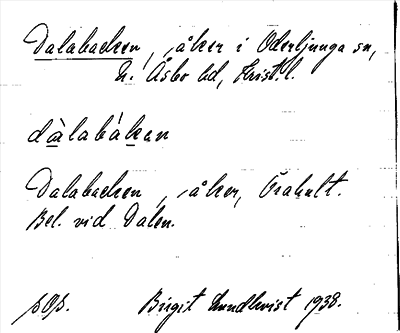 Dalabacken, åker i Oderljunga sn,
N. Åsbo hd, Krist. l.
dàlabákan
Dalabacken, åker, Örahult.
Bel. vid Dalen.
Birgit Lundkvist 1938.